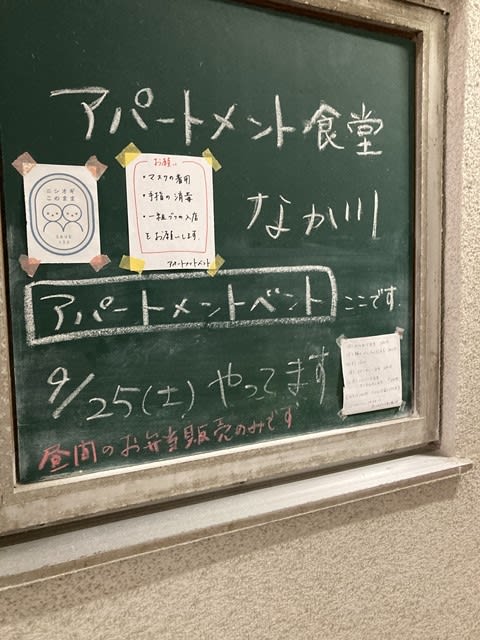 アパートメント食堂
なか川
ニシオギ
このまま
お願い
・マスクの着用
・手指の消毒
・一組づつの入店
をお願いします。
アパートメントメント
アパートメントベント
ここです.
9/25(土)やってます
昼間のお弁当販売のみです